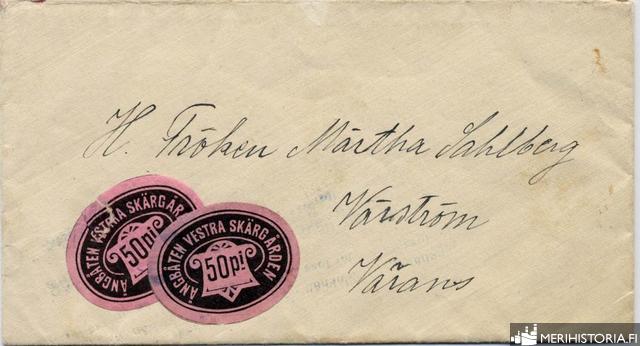 H. Fröken Märtha Sahlberg
Vårström
ÅNGBÅTEN VESTRA SKÄRGÅR
50 pi
ÅNGBÅTEN VESTRA SKÄRGÅRDEN
50 pi
MERIHISTORIA.FI